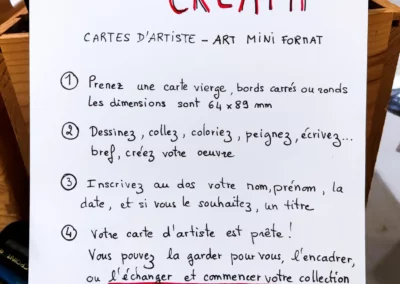 CARTES D'ARTISTE – ART MINI FORMAT
1 Prenez une carte vierge, bords carrés ou ronds
les dimensions sont 64 x 89 mm
2 Dessinez, collez, coloriez, peignez, écrivez...
bref, créez votre oeuvre
3 Inscrivez au dos votre nom, prénom, la
date, et si vous le souhaitez, un titre
4 Votre carte d'artiste est prête !
Vous pouvez la garder pour vous, l'encadrer,
ou l'échanger et commencer votre collection